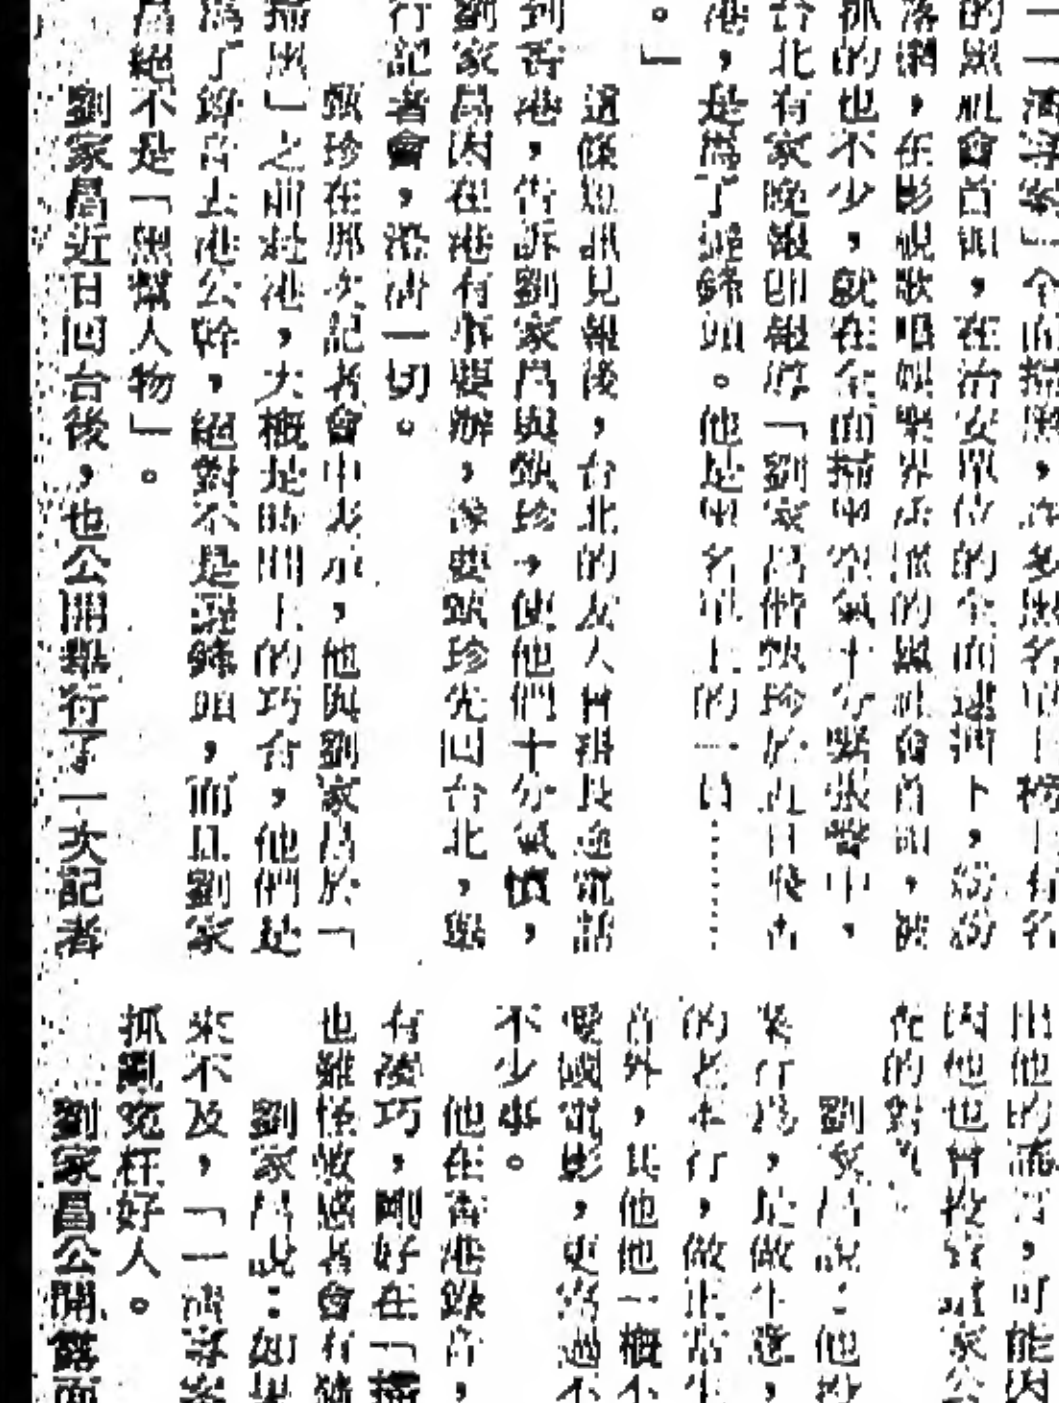 一清專案」全面掃黑，許多黑名單上榜上有名
的黑社會首領，在治安單位的全面逮捕下，紛紛
落網，在影視歌唱娛樂界活躍的黑社會首領，被
抓的也不少，就在全面掃黑空氣十分緊張聲中，
台北有家晚報即報導「劉家昌偕甄珍於近日飛香
港，是為了避鋒頭。他是黑名單上的一員……
。」
這條短訊見報後，台北的友人曾掛長途電話
到香港，告訴劉家昌與甄珍，使他們十分氣憤，
劉家昌因在港有事要辦，遂要甄珍先回台北，舉
行記者會，澄清一切。
甄珍在那次記者會中表示，他與劉家昌於「
掃黑」之前赴港，大概是時間上的巧合，他們是
為了錄音去港公幹，絕對不是避鋒頭，而且劉家
昌絕不是「黑幫人物」。
劉家昌近日回台後，也公開舉行了一次記者
出他的 可能因
因他也曾投資 家公
在的對
劉家昌說：他
業行為，是做生意，
的老本行，做正常生
音外，其他他一概不
愛國電影，更 過不
不少事。
他在香港錄音，
有湊巧，剛好在「掃
也難怪敏感者會有猜
劉家昌說：如果
來不及，「一清專案
抓亂冤枉好人。
劉家昌公開露面